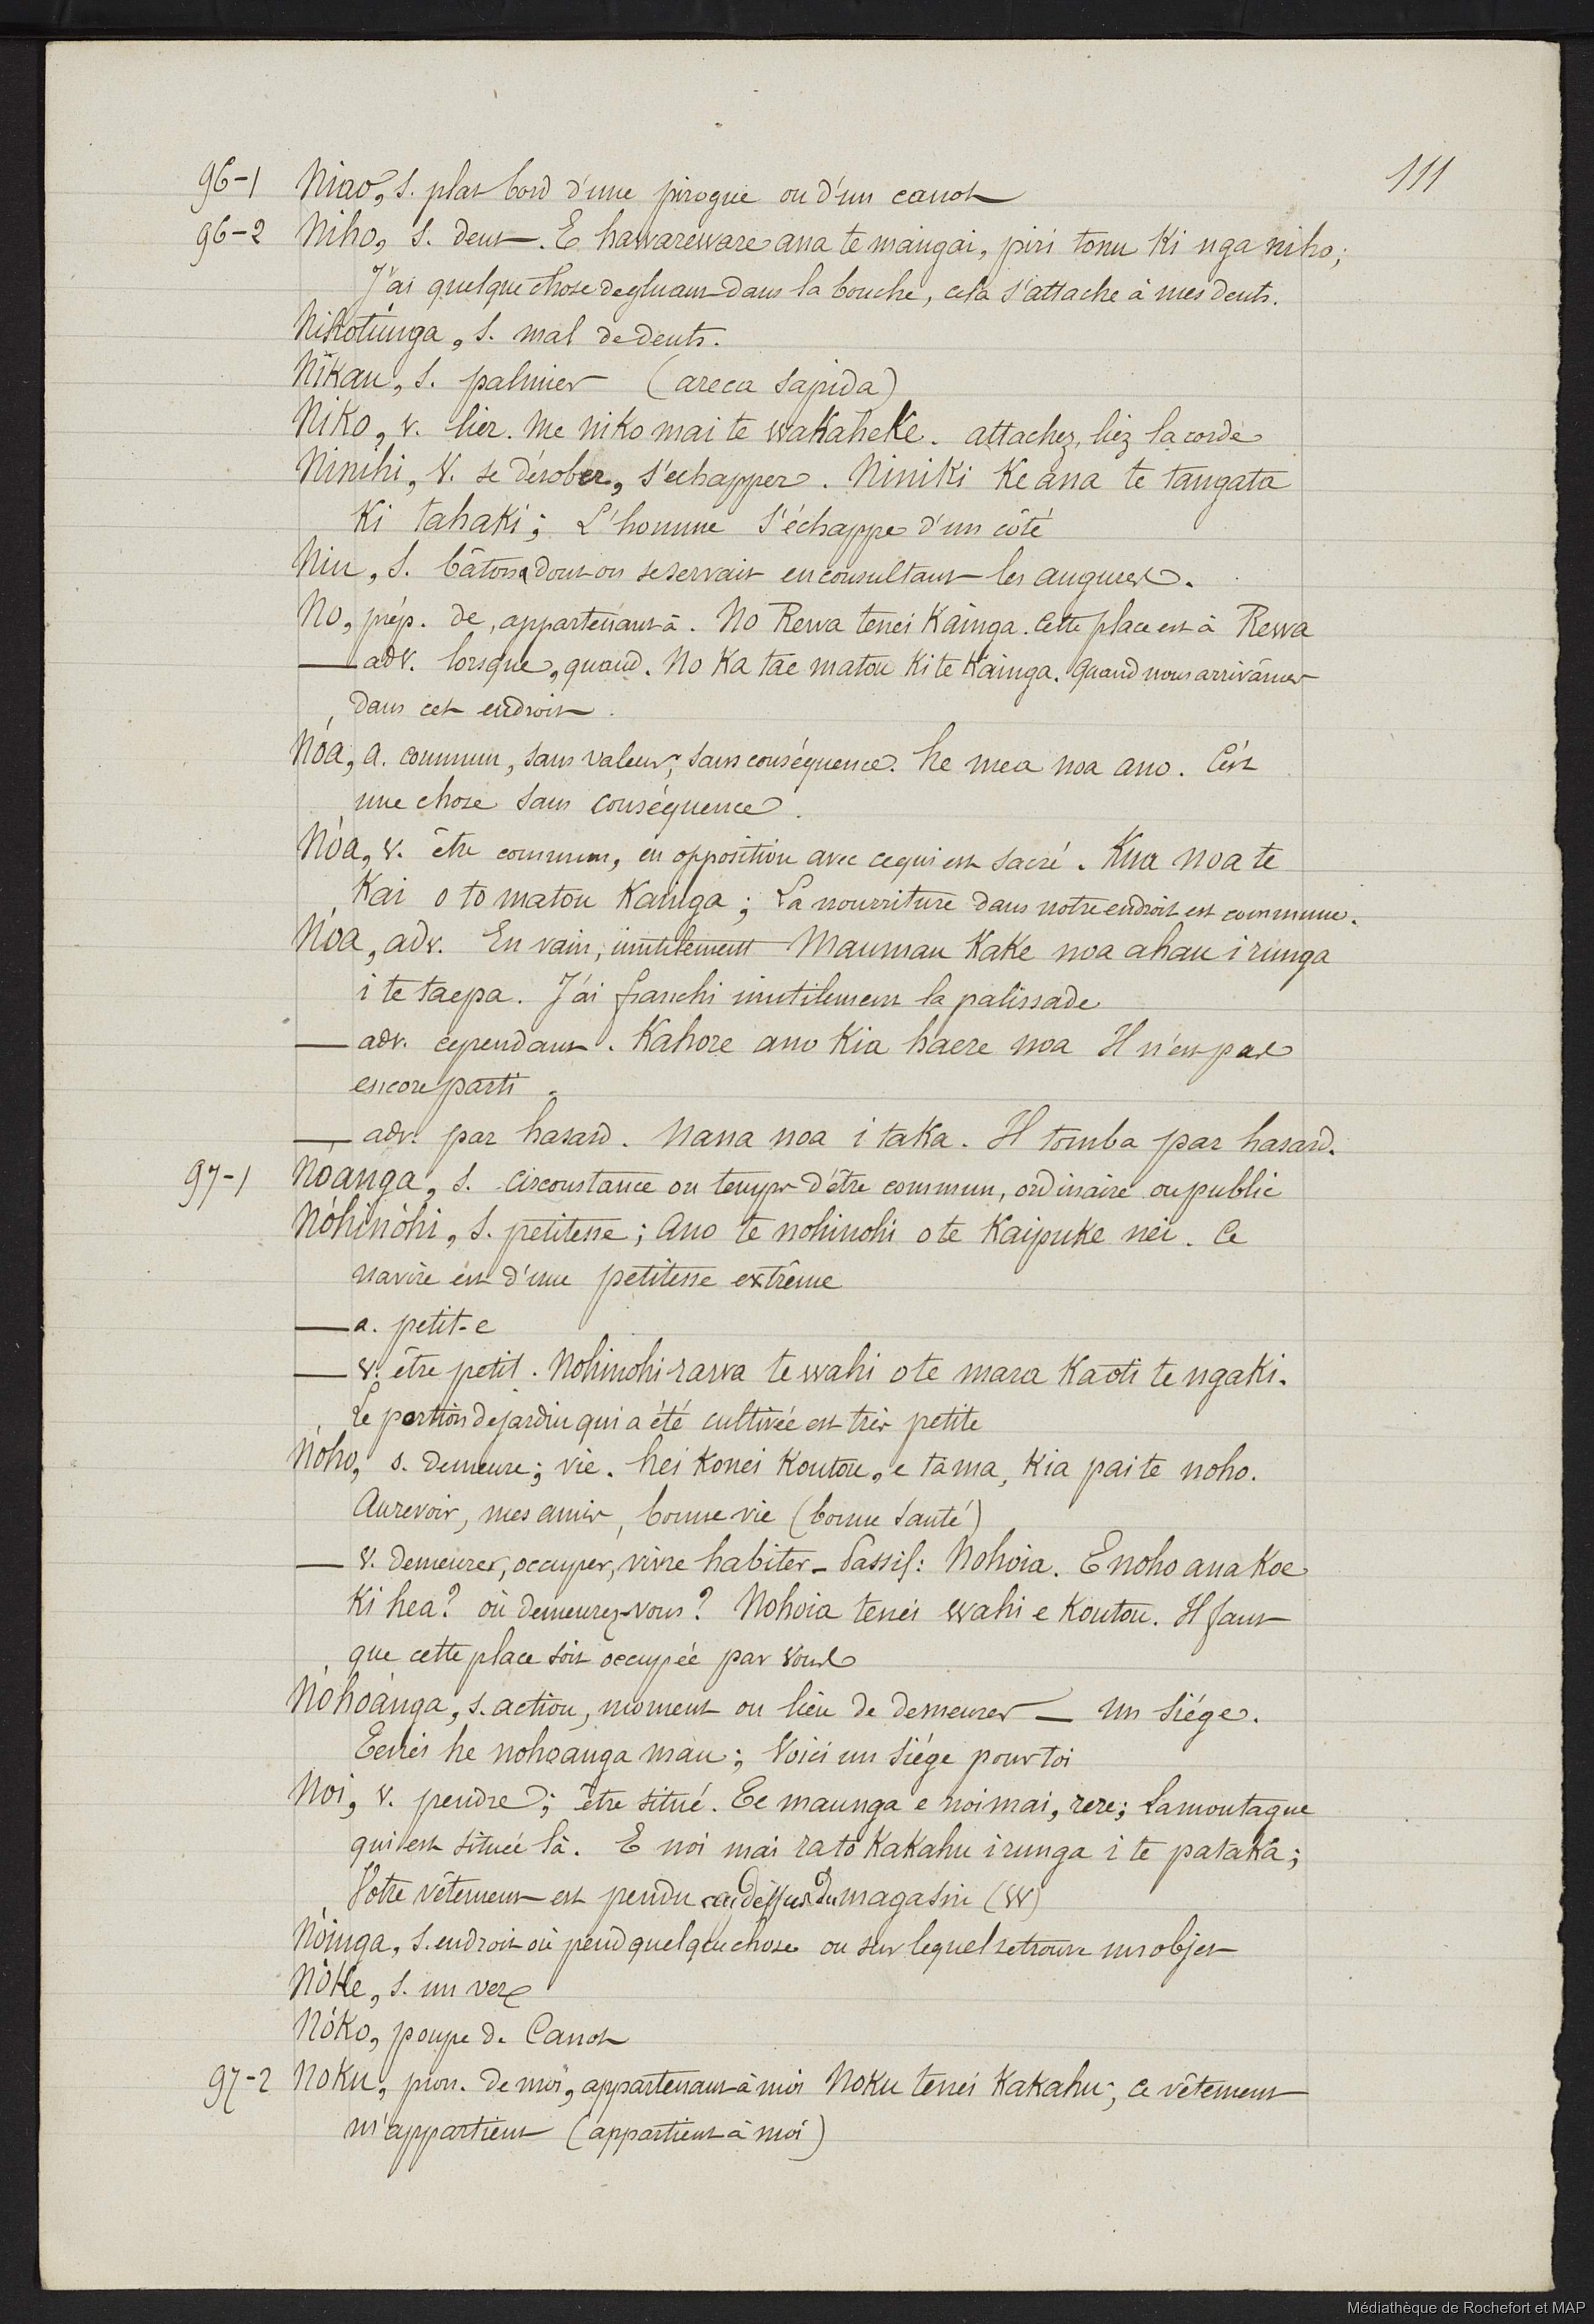 111
96-1 Niao, s. plat bord d'une pirogue ou d'un canot
96-2 Niho, s. dent. E hawareware ana te mangai, piri tonu ki nga niho;
J'ai quelque chose de gluant dans la bouche, cela s'attache à mes dents.
Nihotunga, s. mal de dents.
Nikau, s. palmier (areca sapida)
Niko, v. lier. Me niko mai te wakaheke. attachez, liez la corde
Ninihi, v. se dérober, s'echapper. Niniki ke ana te tangata
ki tahaki; L'homme s'échappe d'un côté
Niu, s. bâtons dont on se servait en consultant les augures.
No, prép. de, appartenant à. No Rewa tenei Kainga. Cette place est à Rewa
— adv. lorsque, quand. No ka tae matou ki te Kainga. Quand nous arrivâmes
dans cet endroit.
Nóa, a. commun, sans valeur, sans conséquence. he mea noa ano. C'est
une chose sans conséquence.
Nóa, v. être commun, en opposition avec ce qui est sacré. Kua noa te
Kai o to matou Kainga; La nourriture dans notre endroit est commune.
Nóa, adv. En vain, inutilement Maumau Kake noa ahau i runga
i te taepa. J'ai franchi inutilement la palissade
— adv. cependant. Kahore ano kia haere noa Il n'est pas
encore parti.
— adv. par hasard. Nana noa i taka. Il tomba par hasard.
97-1 Nóanga, s. circonstance ou temps d'être commun, ordinaire ou public
Nóhinóhi, s. petitesse; Ano te nohinohi o te Kaipuke nei. Ce
navire est d'une petitesse extrême
— a. petit-e
— v. être petit. Nohinohi rawa te wahi o te mara Kaoti te ngaki.
Le portion de jardin qui a été cultivée est très petite
Nóho, s. demeure; vie. hei Konei Koutou, e tama, Kia pai te noho.
Au revoir, mes amis, bonne vie (bonne santé)
— v. demeurer, occuper, vivre habiter - Passif: Nohoia. E noho ana Koe
Ki hea? où demeurez-vous? Nohoia tenei wahi e Koutou. Il faut
que cette place soit occupée par vous
Nóhoánga, s. action, moment ou lieu de demeurer — Un siége.
Tenei he nohoanga mau; Voici un siége pour toi
Noi, v. pendre; être situé. Te maunga e noi mai, rere; La montagne
qui est située là. E noi mai ra to Kakahu i runga i te pataka;
Votre vêtement est pendu au dessus du magasin (W)
Nóinga, s. endroit où pend quelque chose ou sur lequel se trouve un objet
Nóke, s. un ver
Nóko, poupe de Canot
97-2 Noku, pron. de moi, appartenant à moi Noku tenei Kakahu; ce vêtement
m'appartient (appartient à moi)
Médiathèque de Rochefort et MAP